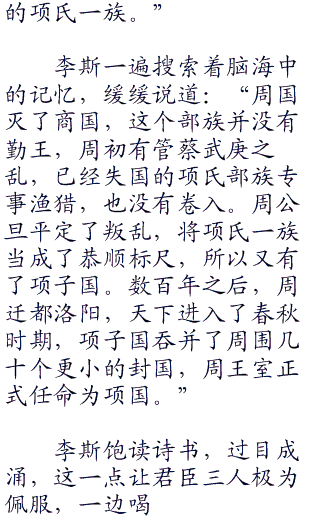 的项氏一族。”
李斯一遍搜索着脑海中
的记忆，缓缓说道：“周国
灭了商国，这个部族并没有
勤王，周初有管蔡武庚之
乱，已经失国的项氏部族专
事渔猎，也没有卷入。周公
旦平定了叛乱，将项氏一族
当成了恭顺标尺，所以又有
了项子国。数百年之后，周
迁都洛阳，天下进入了春秋
时期，项子国吞并了周围几
十个更小的封国，周王室正
式任命为项国。”
李斯饱读诗书，过目成
涌，这一点让君臣三人极为
佩服，一边喝